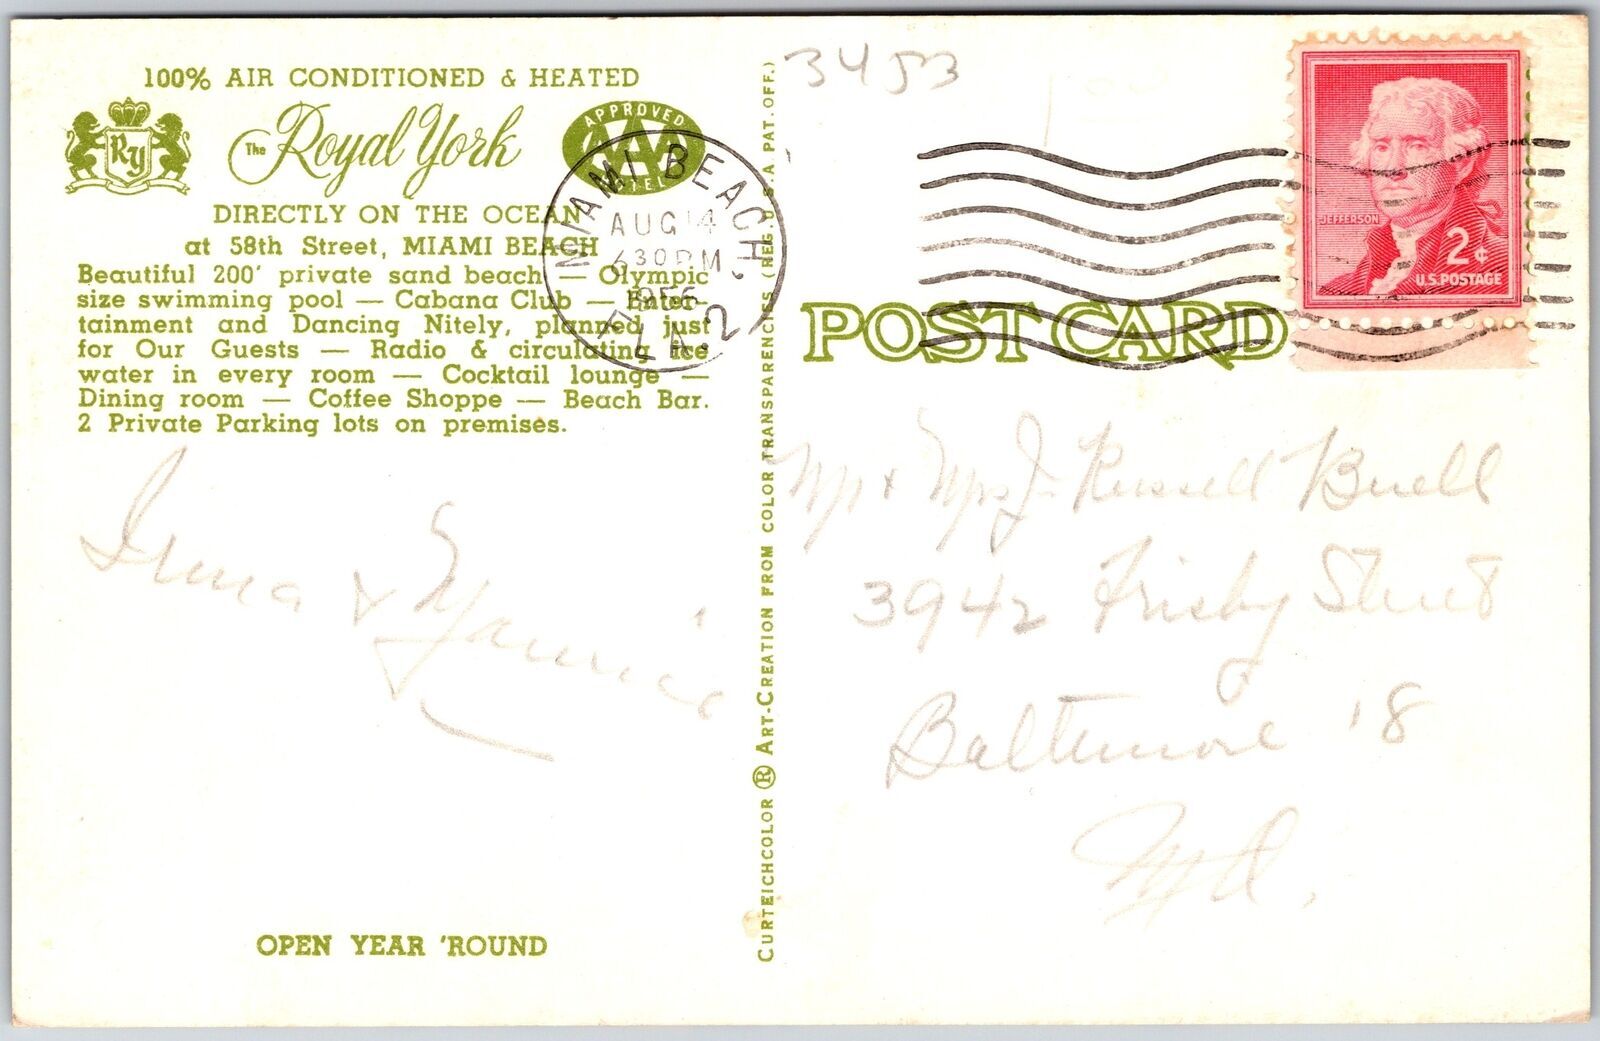 100% AIR CONDITIONED & HEATED
RY
The Royal York
APPROVED
AAA
DIRECTLY ON THE OCEAN
at 58th Street, MIAMI BEACH
Beautiful 200' private sand beach — Olympic
size swimming pool — Cabana Club — Enter-
tainment and Dancing Nitely, planned just
for Our Guests — Radio & circulating ice
water in every room — Cocktail lounge —
Dining room — Coffee Shoppe — Beach Bar.
2 Private Parking lots on premises.
MIAMI BEACH
AUG 14
630PM
FLA. 2
Irma &
OPEN YEAR 'ROUND
CURTEICHCOLOR ® ART-CREATION FROM COLOR TRANSPARENCIES (REG. U.S.A PAT. OFF.)
3453
JEFFERSON
2¢
U.S. POSTAGE
POST CARD
Mr & Mrs J. Russell Buell
3942 Frisby Street
Baltimore 18
Md.